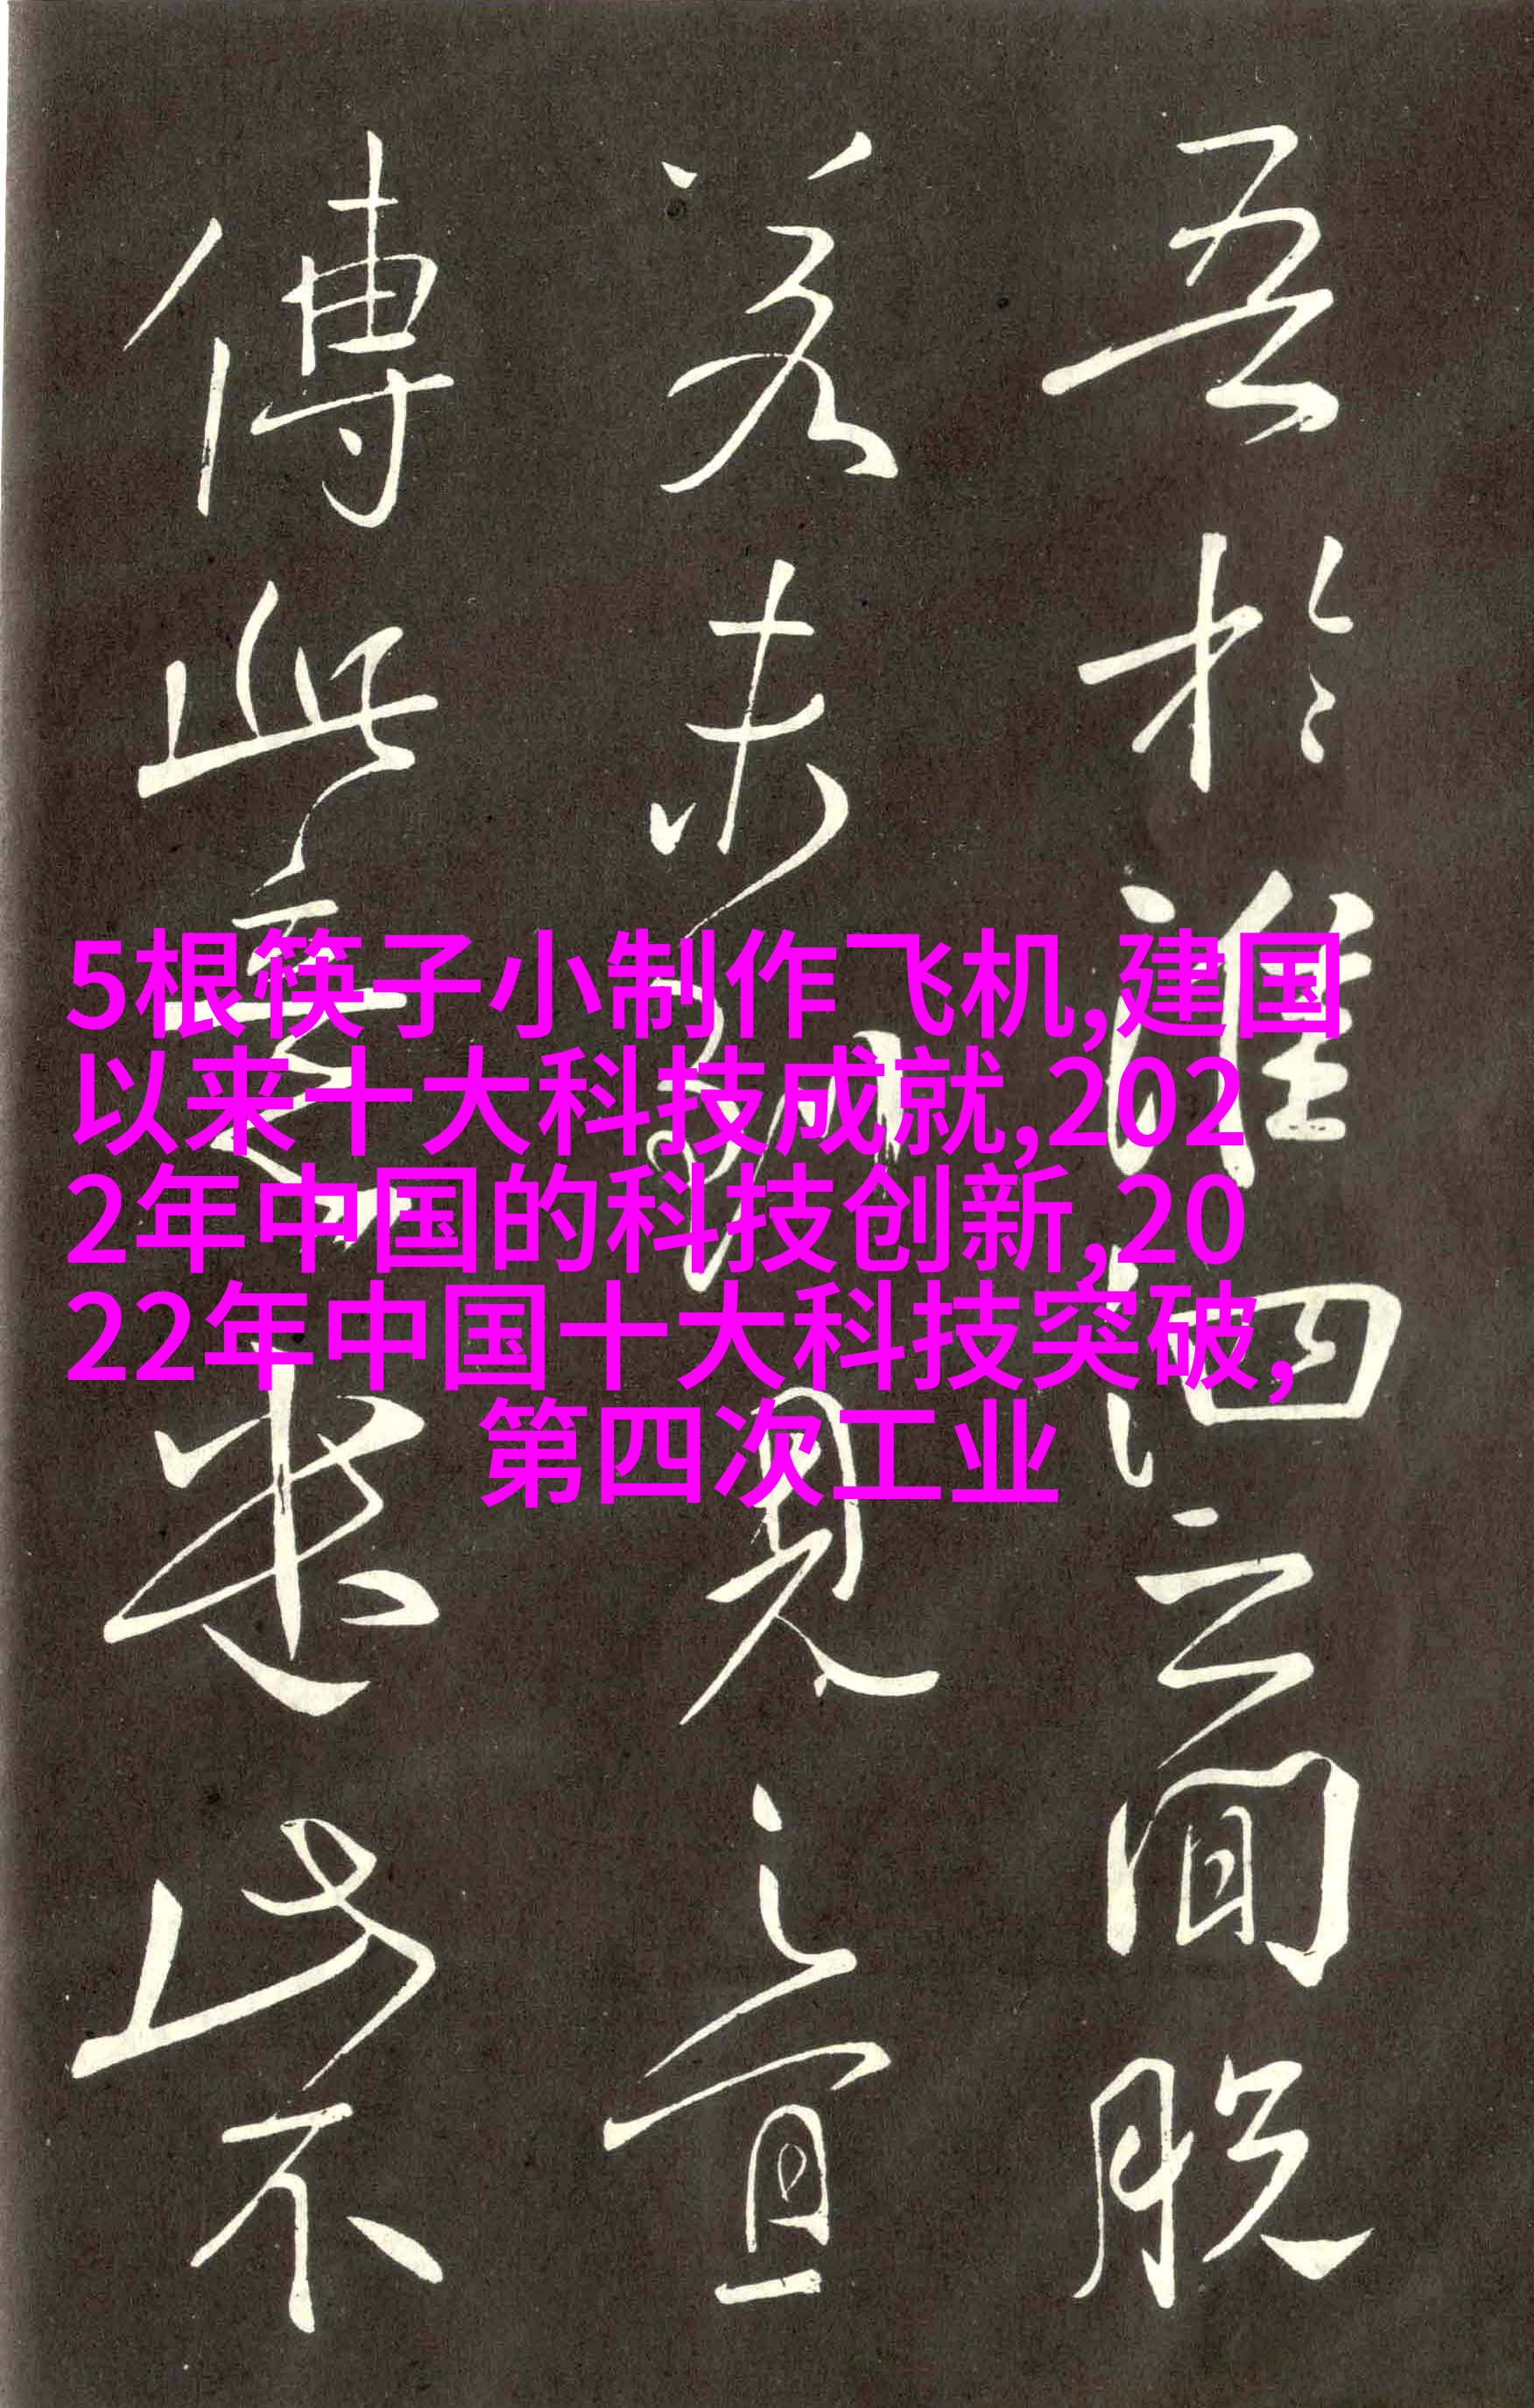 吾於淮泗之間脱
若未
見之宜
傳此意
求此不
5根筷子小制作飞机,建国
以来十大科技成就,202
2年中国的科技创新,20
22年中国十大科技突破,
第四次工业